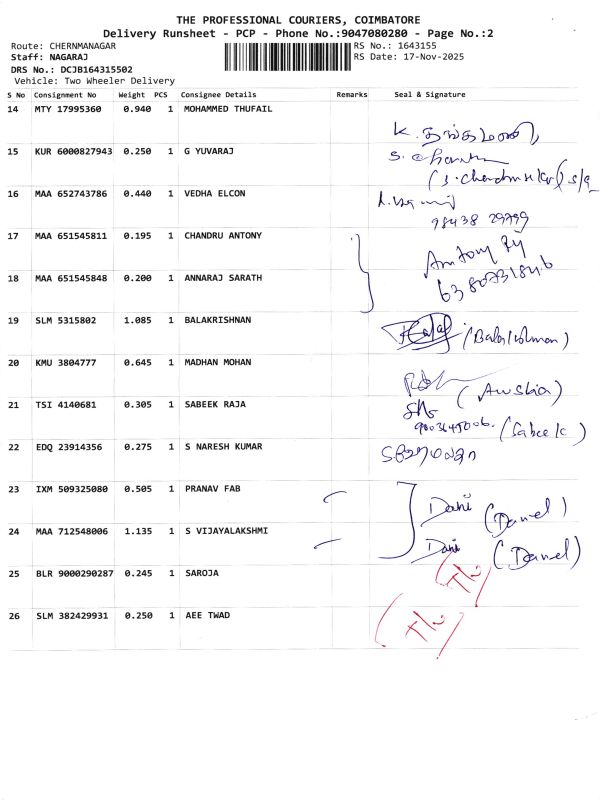 THE PROFESSIONAL COURIERS, COIMBATORE
Delivery Runsheet - PCP - Phone No.:9047080280 - Page No.:2
Route: CHERNMANAGAR RS No.: 1643155
Staff: NAGARAJ RS Date: 17-Nov-2025
DRS No.: DCJB164315502
Vehicle: Two Wheeler Delivery
S No Consignment No Weight PCS Consignee Details Remarks Seal & Signature
14 MTY 17995360 0.940 1 MOHAMMED THUFAIL
K. தங்கமணி
15 KUR 6000827943 0.250 1 G YUVARAJ
16 MAA 652743786 0.440 1 VEDHA ELCON
98438 29799
17 MAA 651545811 0.195 1 CHANDRU ANTONY
Antony
18 MAA 651545848 0.200 1 ANNARAJ SARATH
19 SLM 5315802 1.085 1 BALAKRISHNAN
(Balakrishnan)
20 KMU 3804777 0.645 1 MADHAN MOHAN
21 TSI 4140681 0.305 1 SABEEK RAJA
(Sabeek)
22 EDQ 23914356 0.275 1 S NARESH KUMAR
23 IXM 509325080 0.505 1 PRANAV FAB
Dani (Daniel)
24 MAA 712548006 1.135 1 S VIJAYALAKSHMI
Dani (Daniel)
25 BLR 9000290287 0.245 1 SAROJA
26 SLM 382429931 0.250 1 AEE TWAD